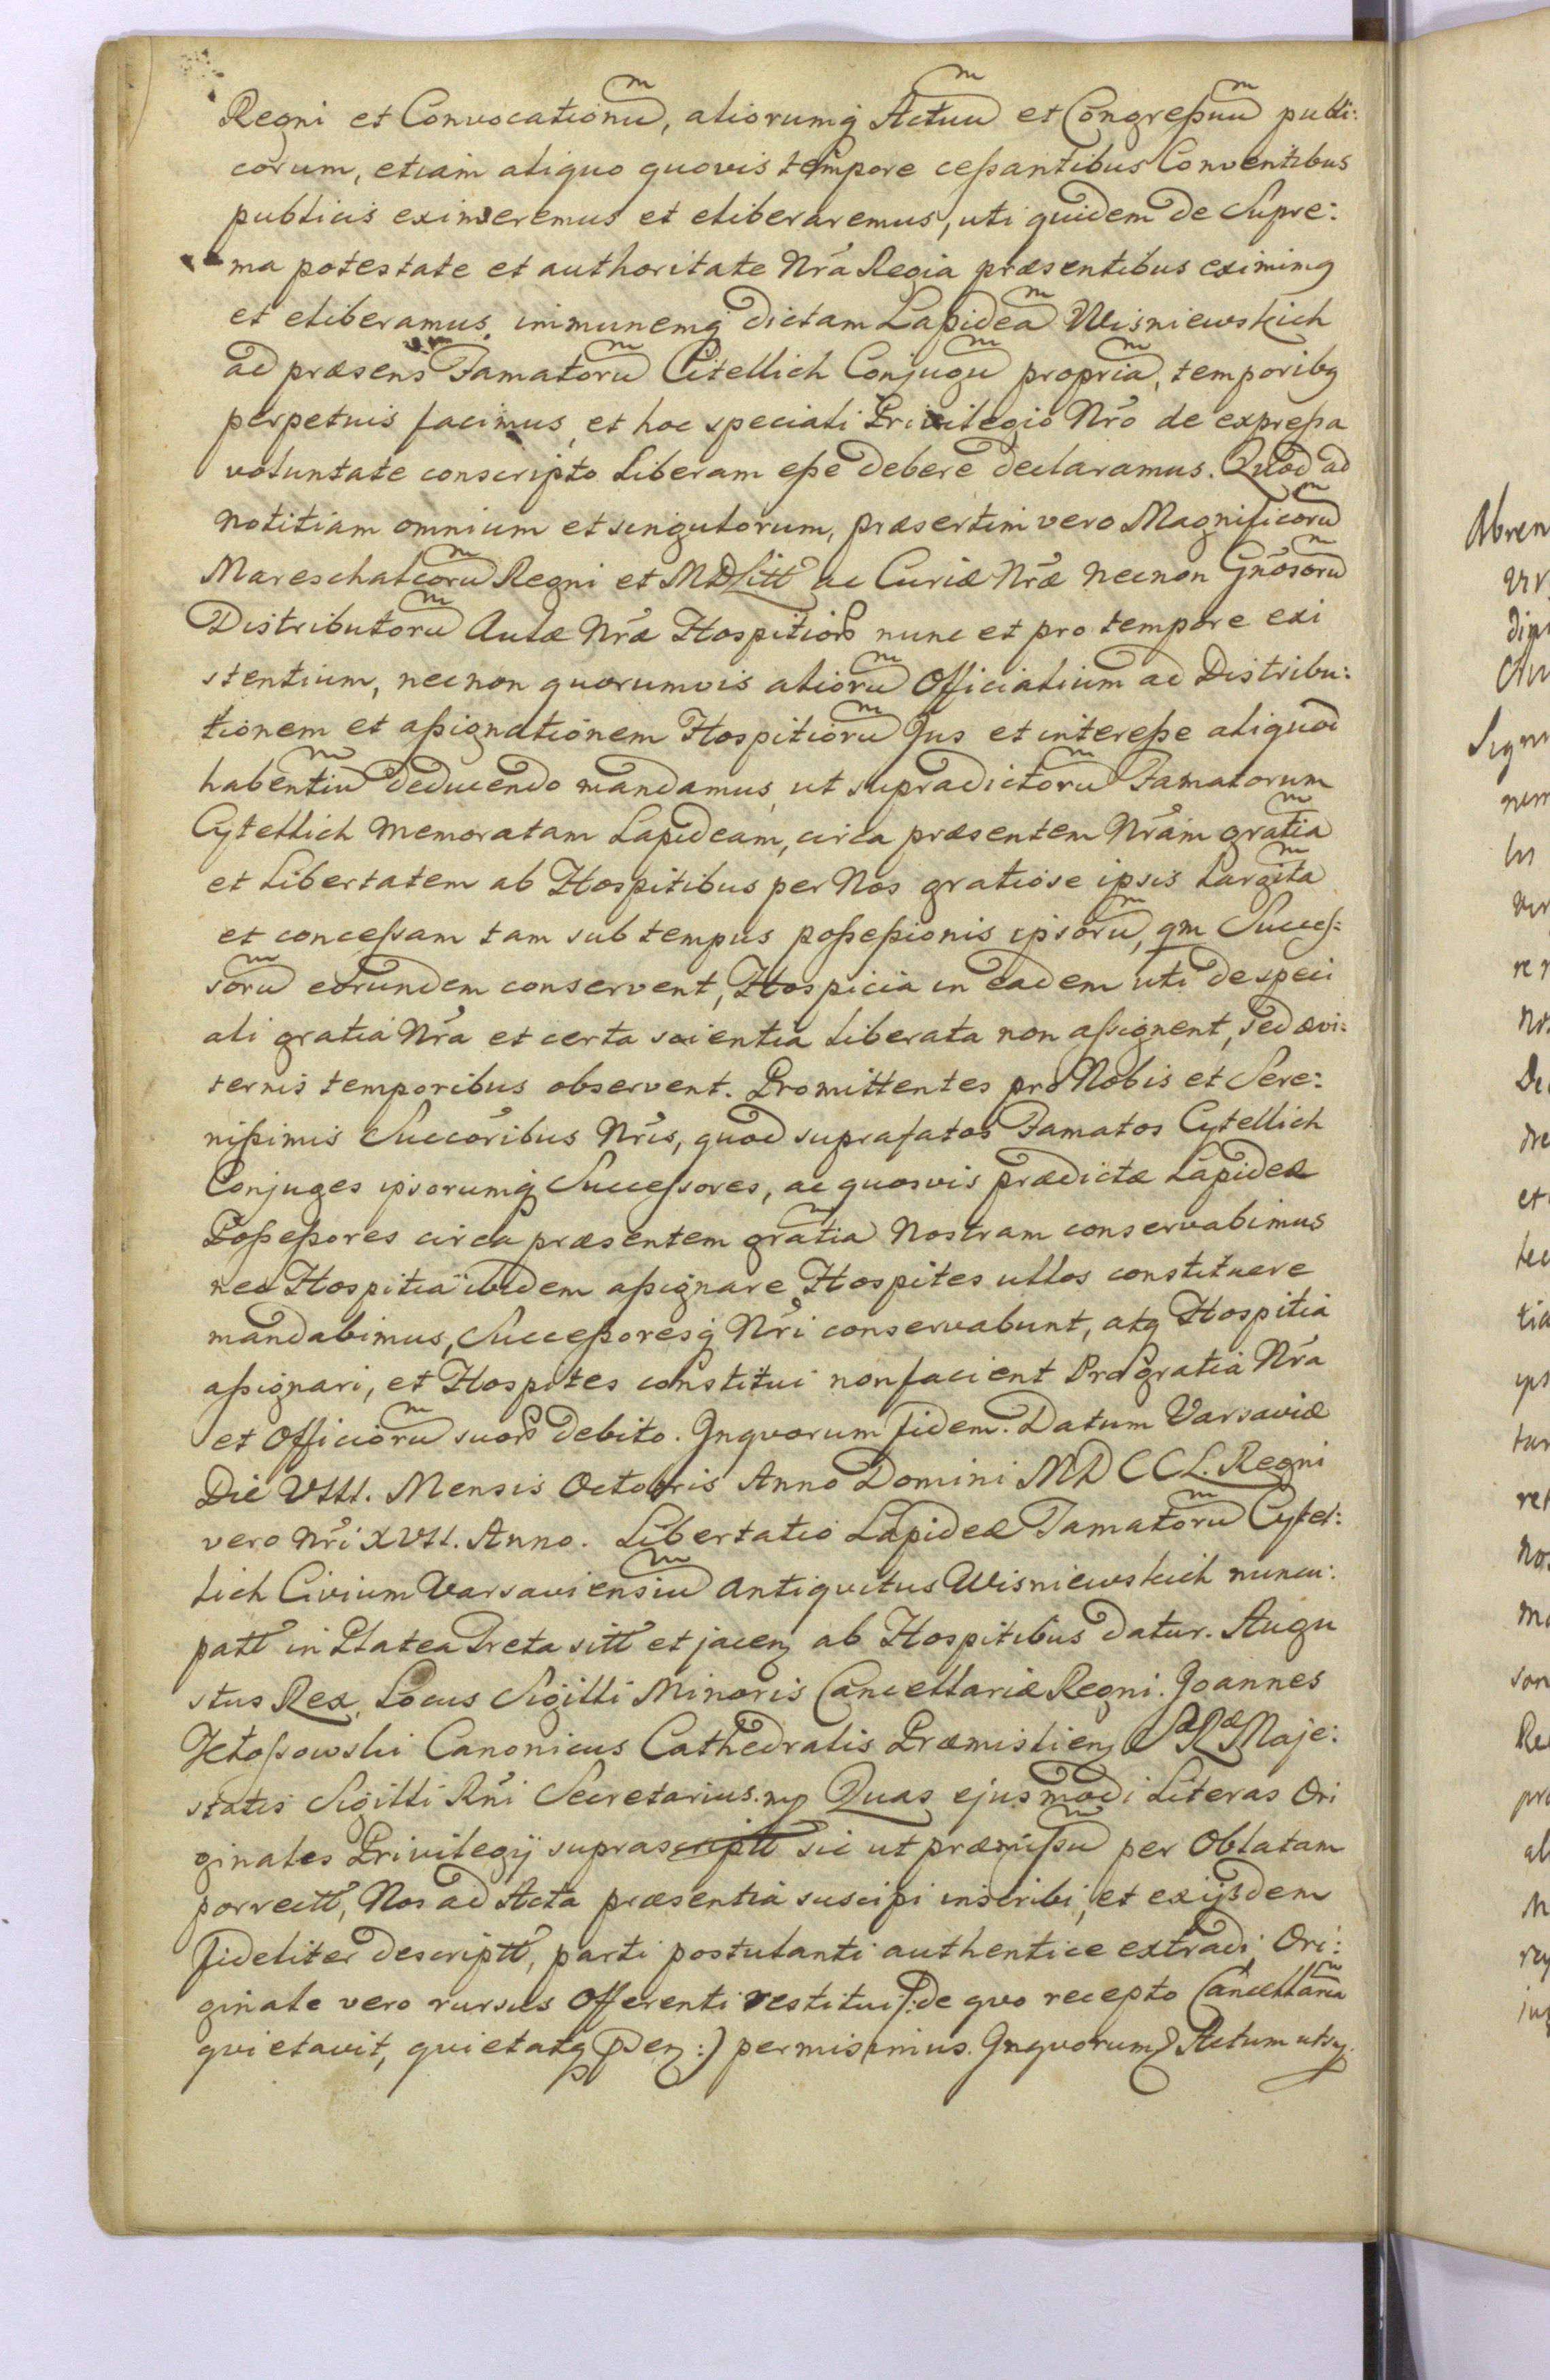 Regni et Convocationũ, aliorumq̃ Actuũ et Congreßuũ publi:
corum, etiam aliquo quovis tempore ceßantibus Conventibus
publicis eximeremus et eliberaremus, uti quidem de Supre:
ma potestate et authoritate Nr̃a Regia præsentibus eximimq
et eliberamus, immunemq̃ dictam Lapideã Wisniewskich
ad præsens Famatorũ Citellich Conjugũ propriã, temporibq
perpetuis facimus, et hoc speciali Privilegio Nr̃o de expreßa
voluntate conscripto Liberam eße debere declaramus. Quod ad
notitiam omnium et singulorum, præsertim vero Magnificorũ
Mareschalcorũ Regni et MDLitt ac Curiæ Nr̃æ necnon Gñosorũ
Distributorũ Aulæ Nr̃æ Hospitior nunc et pro tempore exi
stentium, necnon quorumvis aliorũ Officialium ad Distribu:
tionem et aßignationem Hospitiorũ Jus et intereße aliquod
habentiũ deducendo mandamus, ut supradictorũ Famatorum
Cytellich memoratam Lapideam, circa præsentem Nr̃am gratiã
et Libertatem ab Hospitibus per Nos gratiose ipsis Largitã
et conceßam tam sub tempus poßeßionis ipsorũ, qm Succeß:
sorũ eorundem conservent, Hospicia in eadem uti de speci
ali gratia Nr̃a et certa scientia Liberata non aßignent, sed ævi:
ternis temporibus observent. Promittentes pro Nobis et Sere:
nißimis Succoribus Nr̃is, quod suprafatos Famatos Cytellich
Conjuges ipsorumq̃ Succeßores, ac quosvis prædictæ Lapideæ
Poßeßores circa præsentem gratiã Nostram conservabimus
nec Hospitia ibidem aßignare Hospites ullos constituere
mandabimus, Succeßoresq̃ Nr̃i conservabunt, atq Hospitia
aßignari, et Hospites constitui non facient Pro gratia Nr̃a
et Officiorũ suor debito. Inquorum fidem. Datum Varsaviæ
Die VIII. Mensis Octobris Anno Domini MDCCL. Regni
vero Nr̃i XVII. Anno. Libertatio Lapideæ Famatorũ Cytel:
lich Civium Varsaviensiũ antiquitus Wisniewskich nuncu:
patt in Platea Freta sitt et jacenꝫ ab Hospitibus datur. Augu
stus Rex, Locus Sigilli Minoris Cancellariæ Regni. Joannes
Canonicus Cathedralis Præmislienꝫ Sæ Ræ Maje:
statis Sigilli Rñi Secretarius. mp Quas ejusmodi Literas Ori
ginales Privilegij suprascriptt sic ut præmißũ per Oblatam
porrectt, Nos ad Acta præsentia suscipi inscribi, et exijsdem
fideliter descriptt, parti postulanti authentice extradi, Ori:
ginale vero rursus Offerenti restitui /: de quo recepto Cancellariã
quietavit, quietatq psenꝫ :/ permisimus. Inquorum Actum uts.